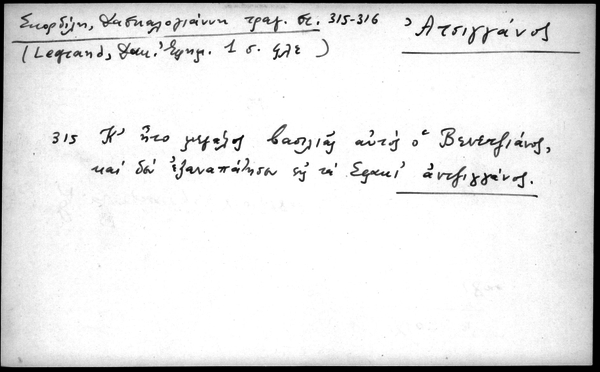 Σκορδίλη, Δασκαλογιάννη τραγ. στ. 315-316
(Legrand, Δακ. Ἐφημ. 1 σ. ϟλε )
Ἀτσιγγάνος
315 Κ' ἦτο μεγάλος βασιλιᾶς αὐτός ὁ Βενετζιάνος,
καί δέν ἐξαναπάτησεν εἰς τά Σφακι' ἀντζιγγάνος.